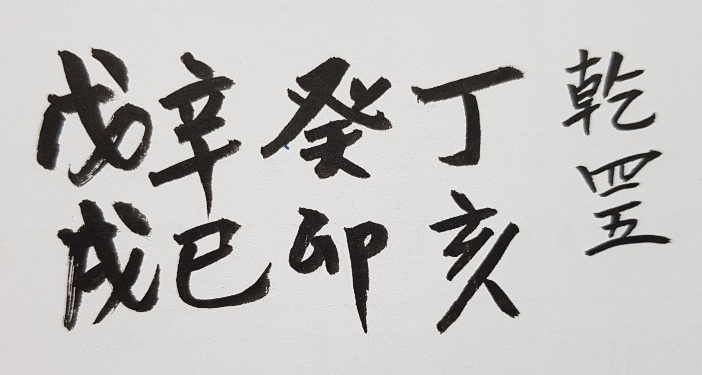 乾四五
丁亥
癸卯
辛巳
戊戌